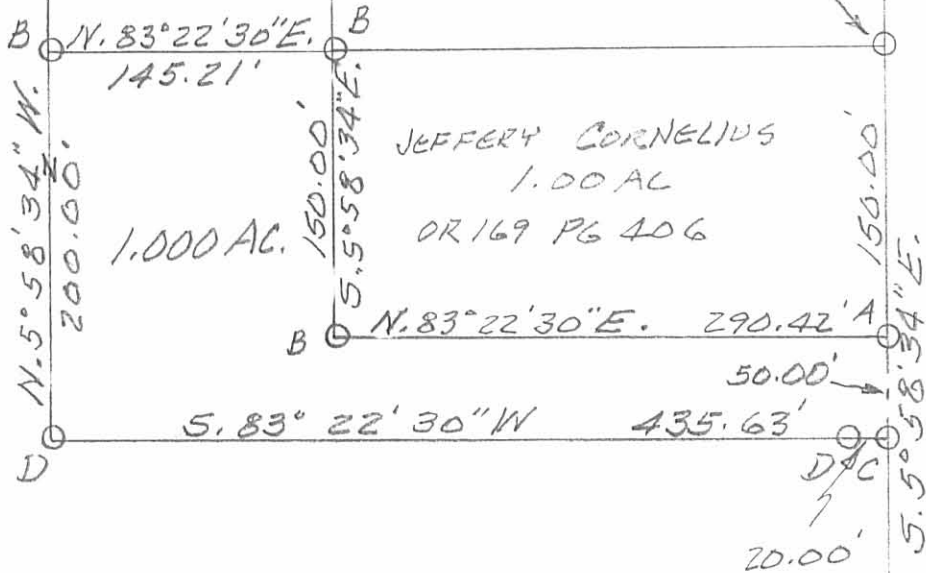 B N. 83°22'30"E. B
145.21'
N. 5°58'34" W.
200.00'
1.000 AC.
150.00'
S. 5°58'34"E.
JEFFERY CORNELIUS
1.00 AC
OR 169 PG 406
150.00'
B N. 83°22'30"E. 290.42' A
50.00'
S. 5°58'34"E.
S. 83° 22' 30" W 435.63'
D D C
20.00'